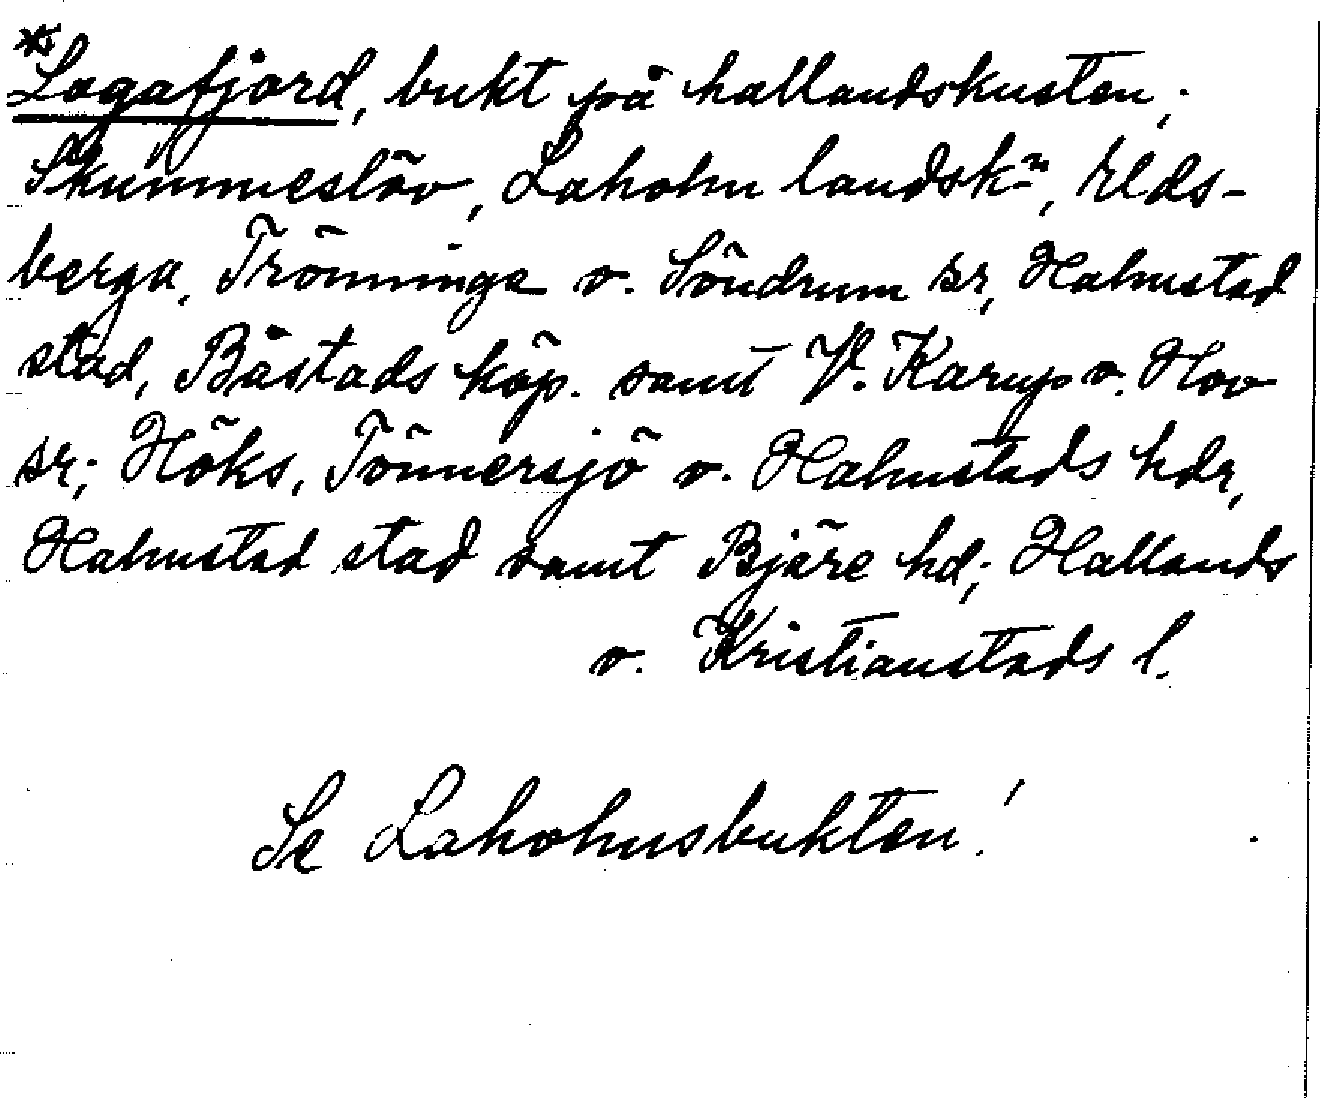 *Lagafjord, bukt på hallandskusten;
Skummeslöv, Laholm landskn, Elds-
berga, Trönninge o. Söndrum sr, Halmstad
stad, Båstads köp. samt V. Karup o. Hov
sr; Höks, Tönnersjö o. Halmstads hdr,
Halmstad stad samt Bjäre hd; Hallands
o. Kristianstads l.
Se Laholmsbukten!